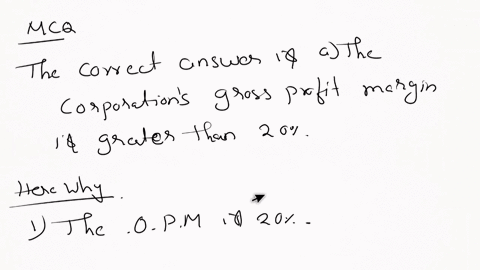 MCQ
The correct answer is a) The
Corporation's gross profit margin
is greater than 20%.
Here Why.
1) The .O.P.M is 20%.